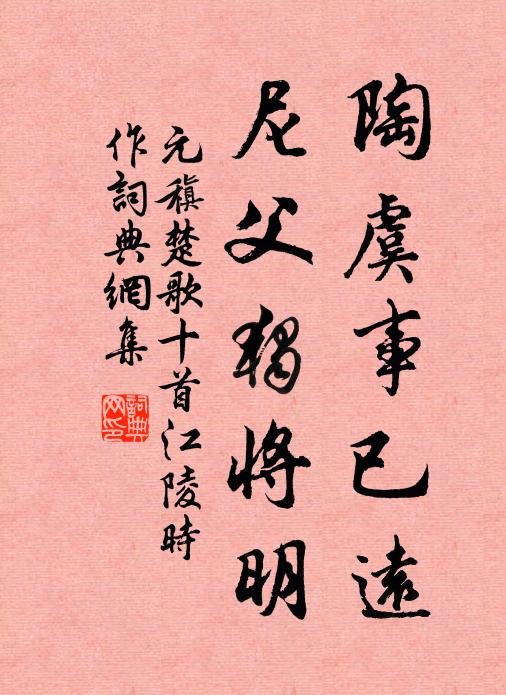 陶虞事已遠
尼父獨將明
元稹楚歌十首江陵時
作詞典網集
詞典
网印